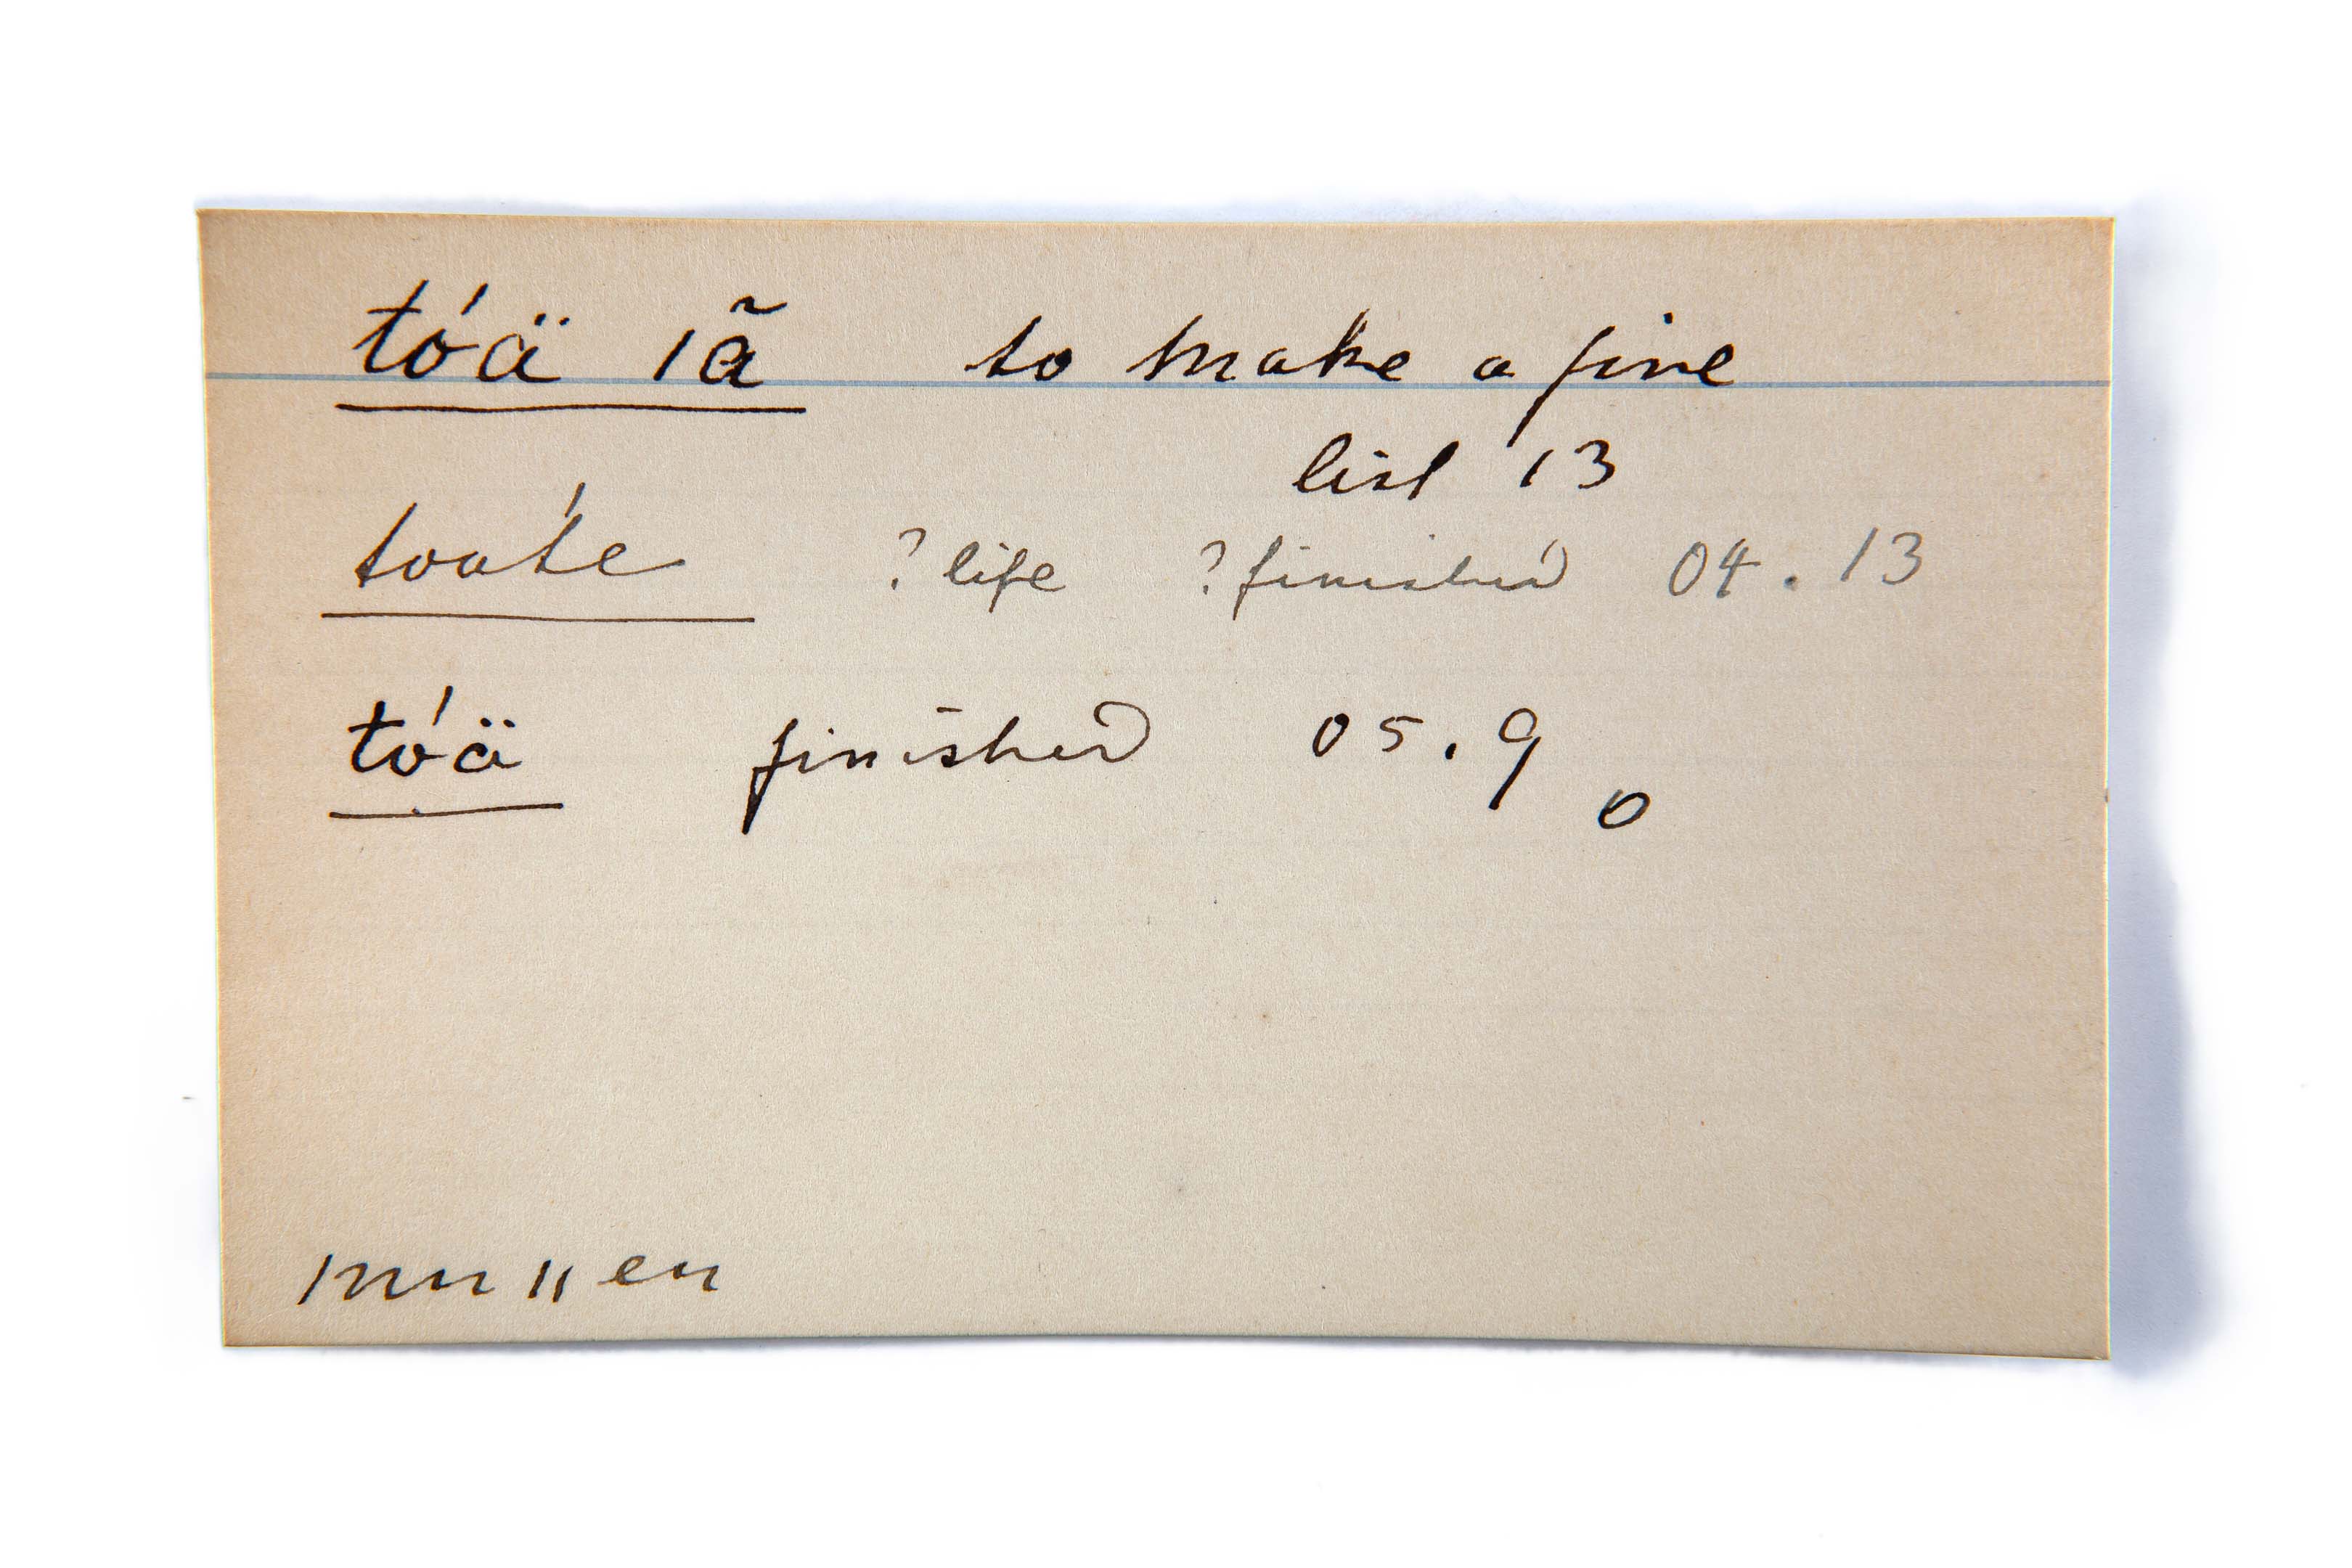 tóä ıã to make a fire
list 13
toáte ?life ?finished 04.13
tóä finished 05.9